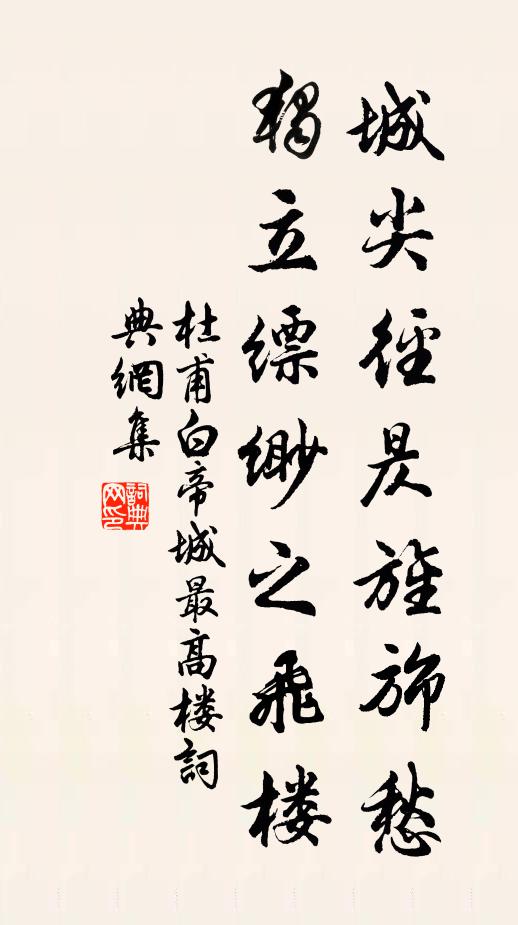 城尖径昃旌旆愁
獨立缥缈之飛楼
杜甫白帝城最高楼詞
典網集
詞典网印